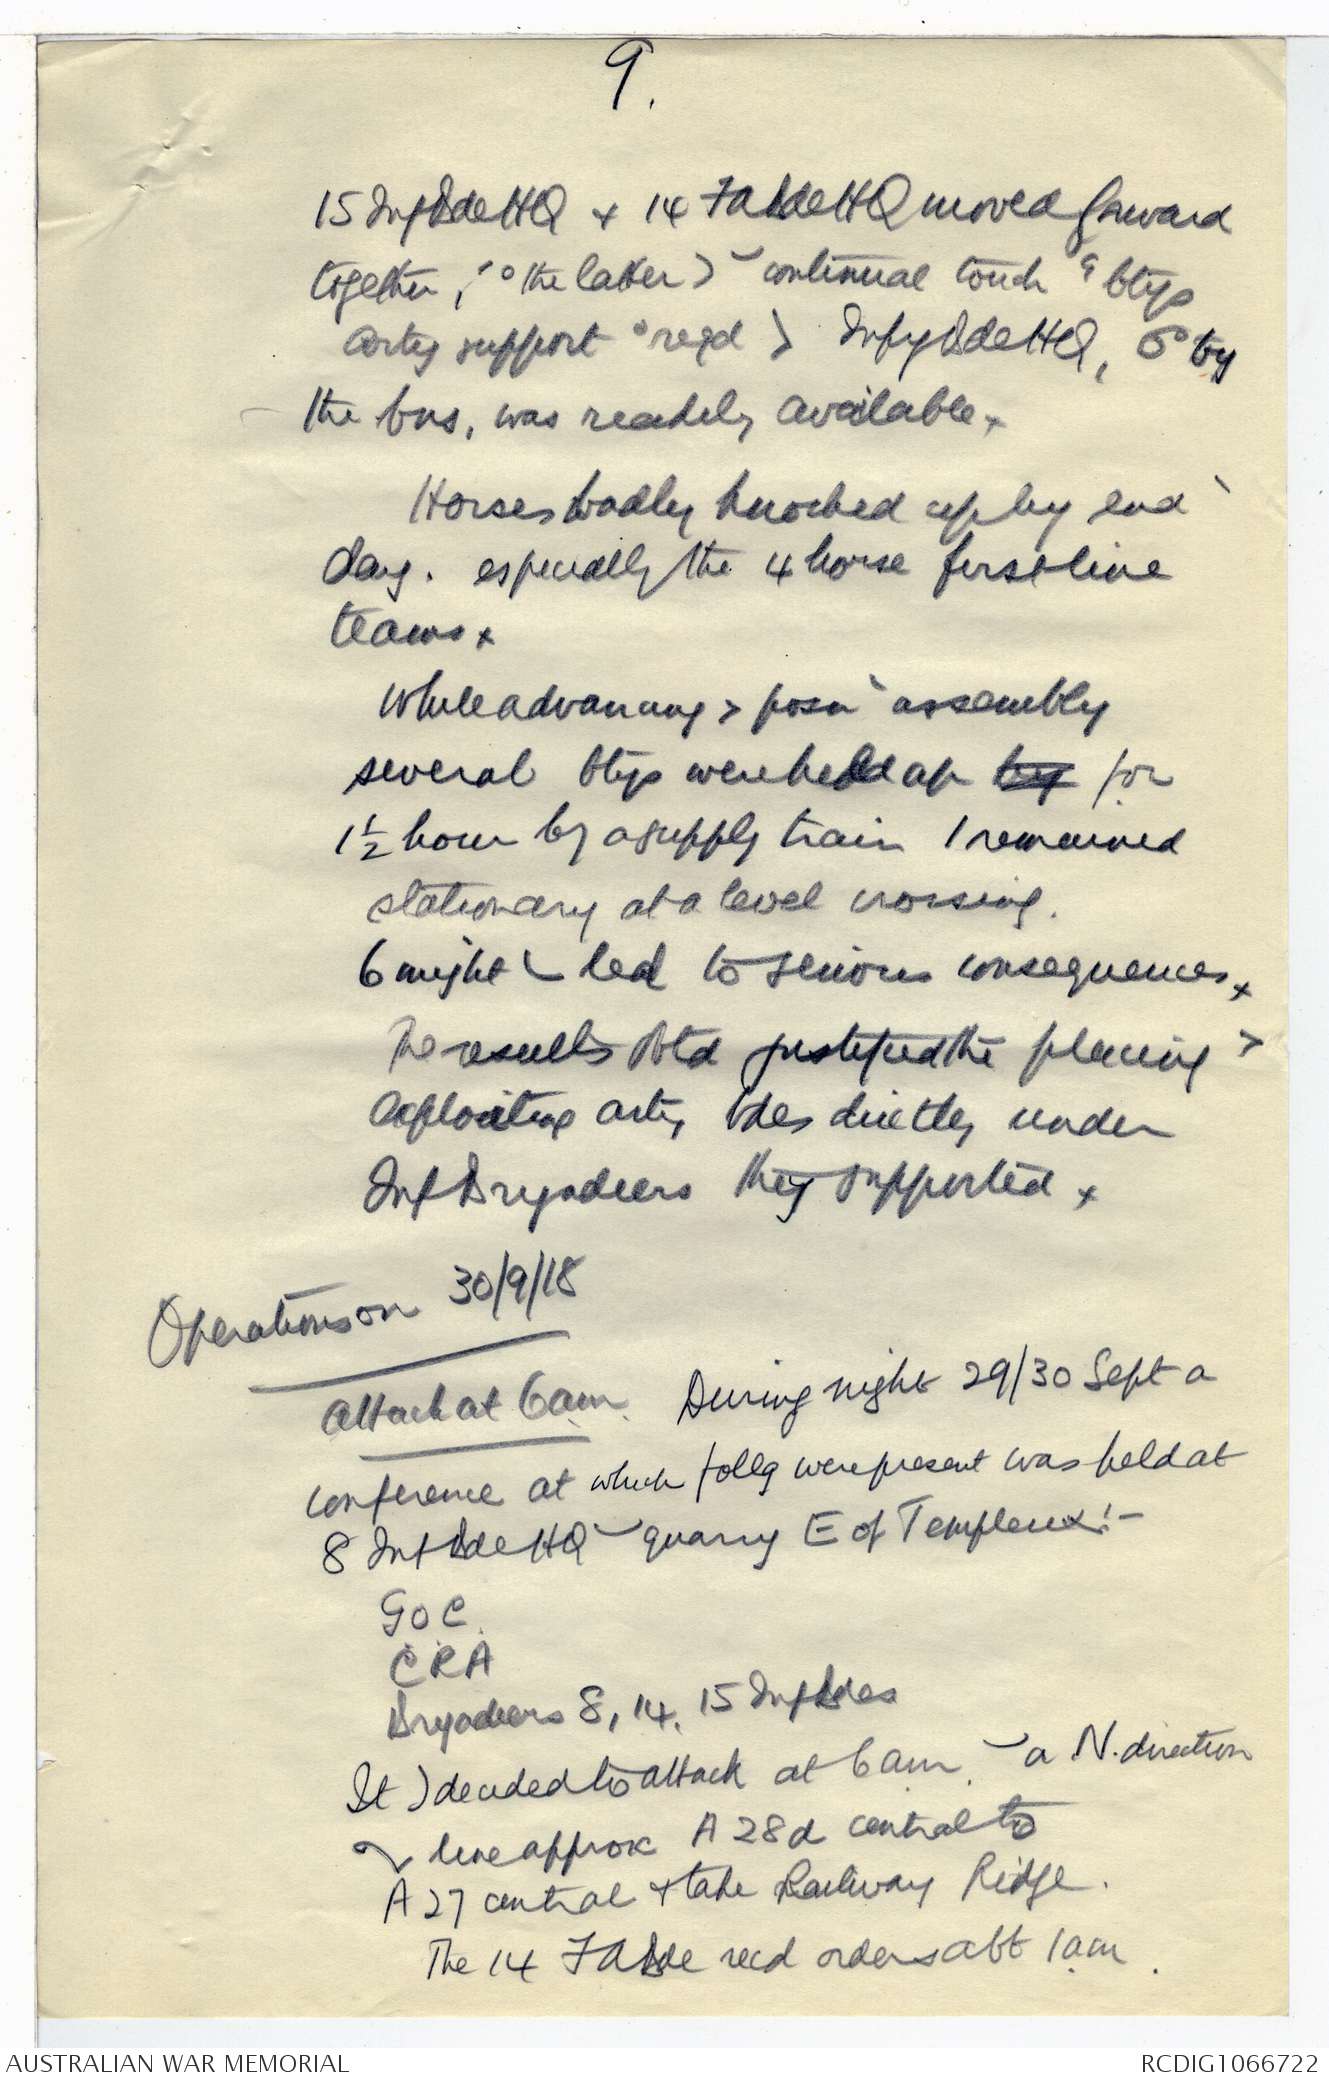 9.
15 Inf Bde HQ + 14 FA Bde HQ moved forward
together, the latter continual touch btys
Arty support reqd Infy Bde HQ, by
the bns, was readily available x
Horses badly knocked up by end
day. especially the 4 horse first line
teams x
While advancing > posn assembly
several btys were held up by for
1½ hour by a supply train / remained
stationary at a level crossing.
might led to serious consequences x
The results obtd justified the placing >
exploiting arty bdes directly under
Inf Brigadiers they supported x
Operations on 30/9/18
Attack at 6 am. During night 29/30 Sept a
conference at which follg were present was held at
8 Inf Bde HQ quarry E of Templeux:-
GOC.
CRA
Brigadiers 8, 14, 15 Inf Bdes
It ) decided to attack at 6 am. a N. direction
line approx A 28 d central to
A 27 central + take Railway Ridge.
The 14 FA Bde recd orders abt 1 am.
AUSTRALIAN WAR MEMORIAL
RCDIG1066722